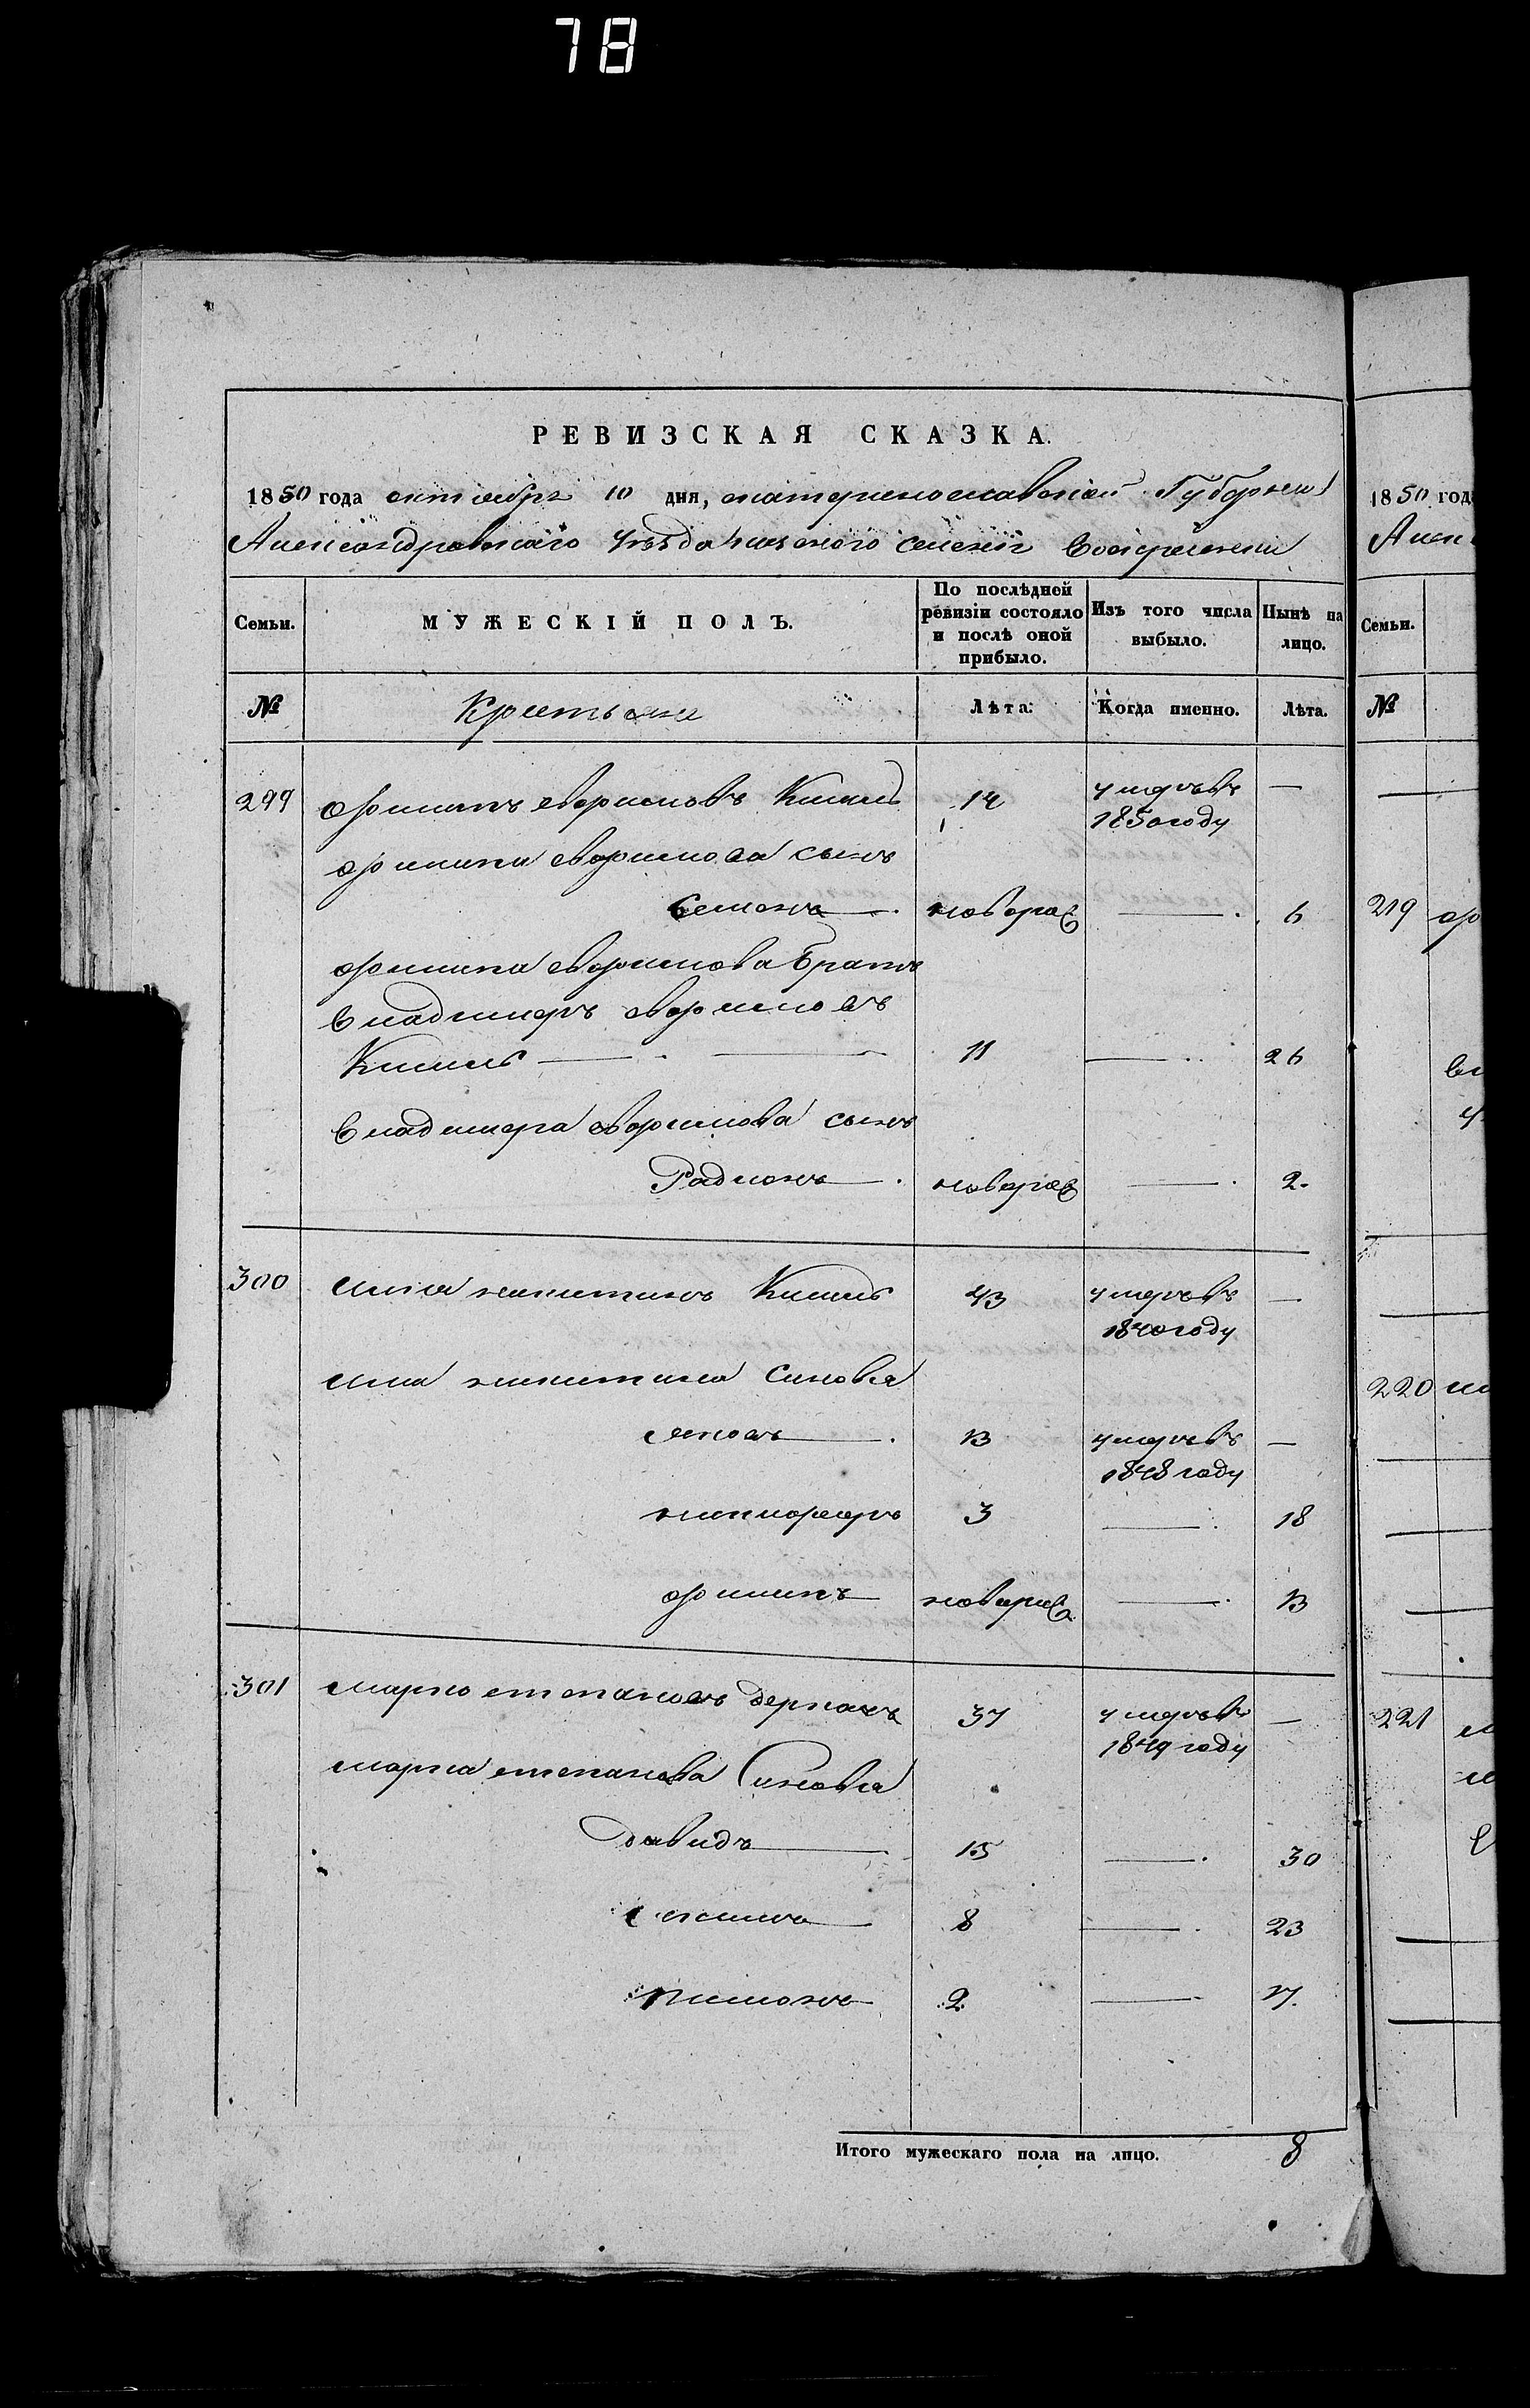 78
РЕВИЗСКАЯ СКАЗКА.
1850 года октября 10 дня, екатеринославской Губернии
Александровскаго уезда казенного селения Воскресенки
Семьи. МУЖЕСКІЙ ПОЛЪ. По послѣдней ревизіи состояло и послѣ оной прибыло. Изъ того числа выбыло. Нынѣ на лицо.
№ Крестьяне Лѣта: Когда именно. Лѣта.
299 филипъ ефримовъ Кишъ 14 умеръ въ —
1850 году
филипа ефримова сынъ
Семенъ новорож — 6
филипа ефримова Братъ
владимеръ ефримовъ
11 — 26
владимера ефримова сынъ
Радионъ новорож — 2.
300 никитинъ 43 умеръ въ —
1840 году
никитина Синовья
13 умеръ въ —
1848 году
никифоръ 3 — 18
филипъ новорож — 13
301 марко степановъ деркачъ 37 умеръ въ —
1849 году
марка степанова Синовья
давидъ 15 — 30
8 — 23
тимохъ 2 — 17.
Итого мужескаго пола на лицо. 8
1850 год
Семьи.
№
219
220
221